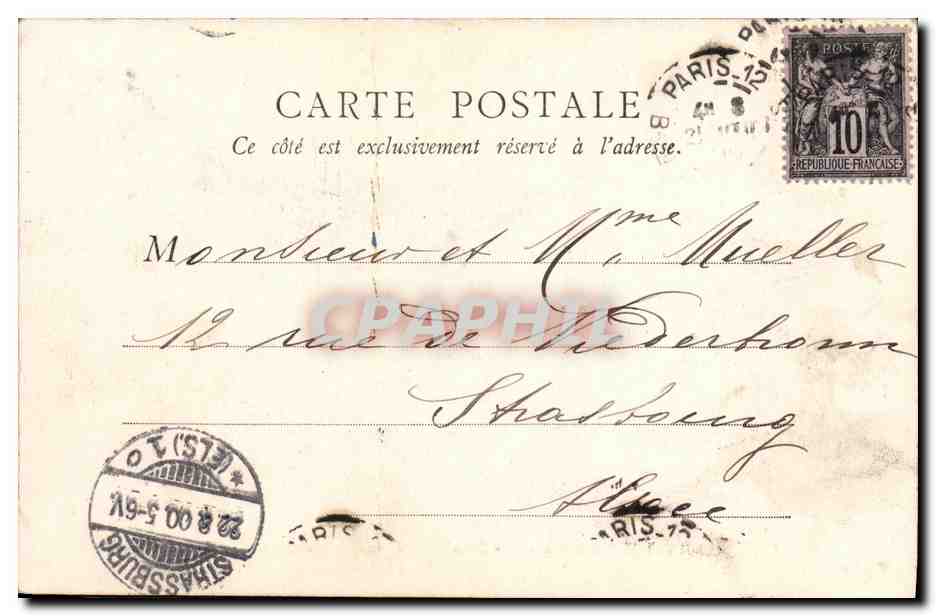 CARTE POSTALE
Ce côté est exclusivement réservé à l'adresse.
PARIS_12
POSTE
10
REPUBLIQUE FRANÇAISE
Monsieur et Mme Mueller
CPAPHIL
12 rue de Niederbronn
Strasbourg
Alsace
STRASSBURG
22.8.00.5-6V.
* (ELS). 1 o
PARIS
PARIS_12